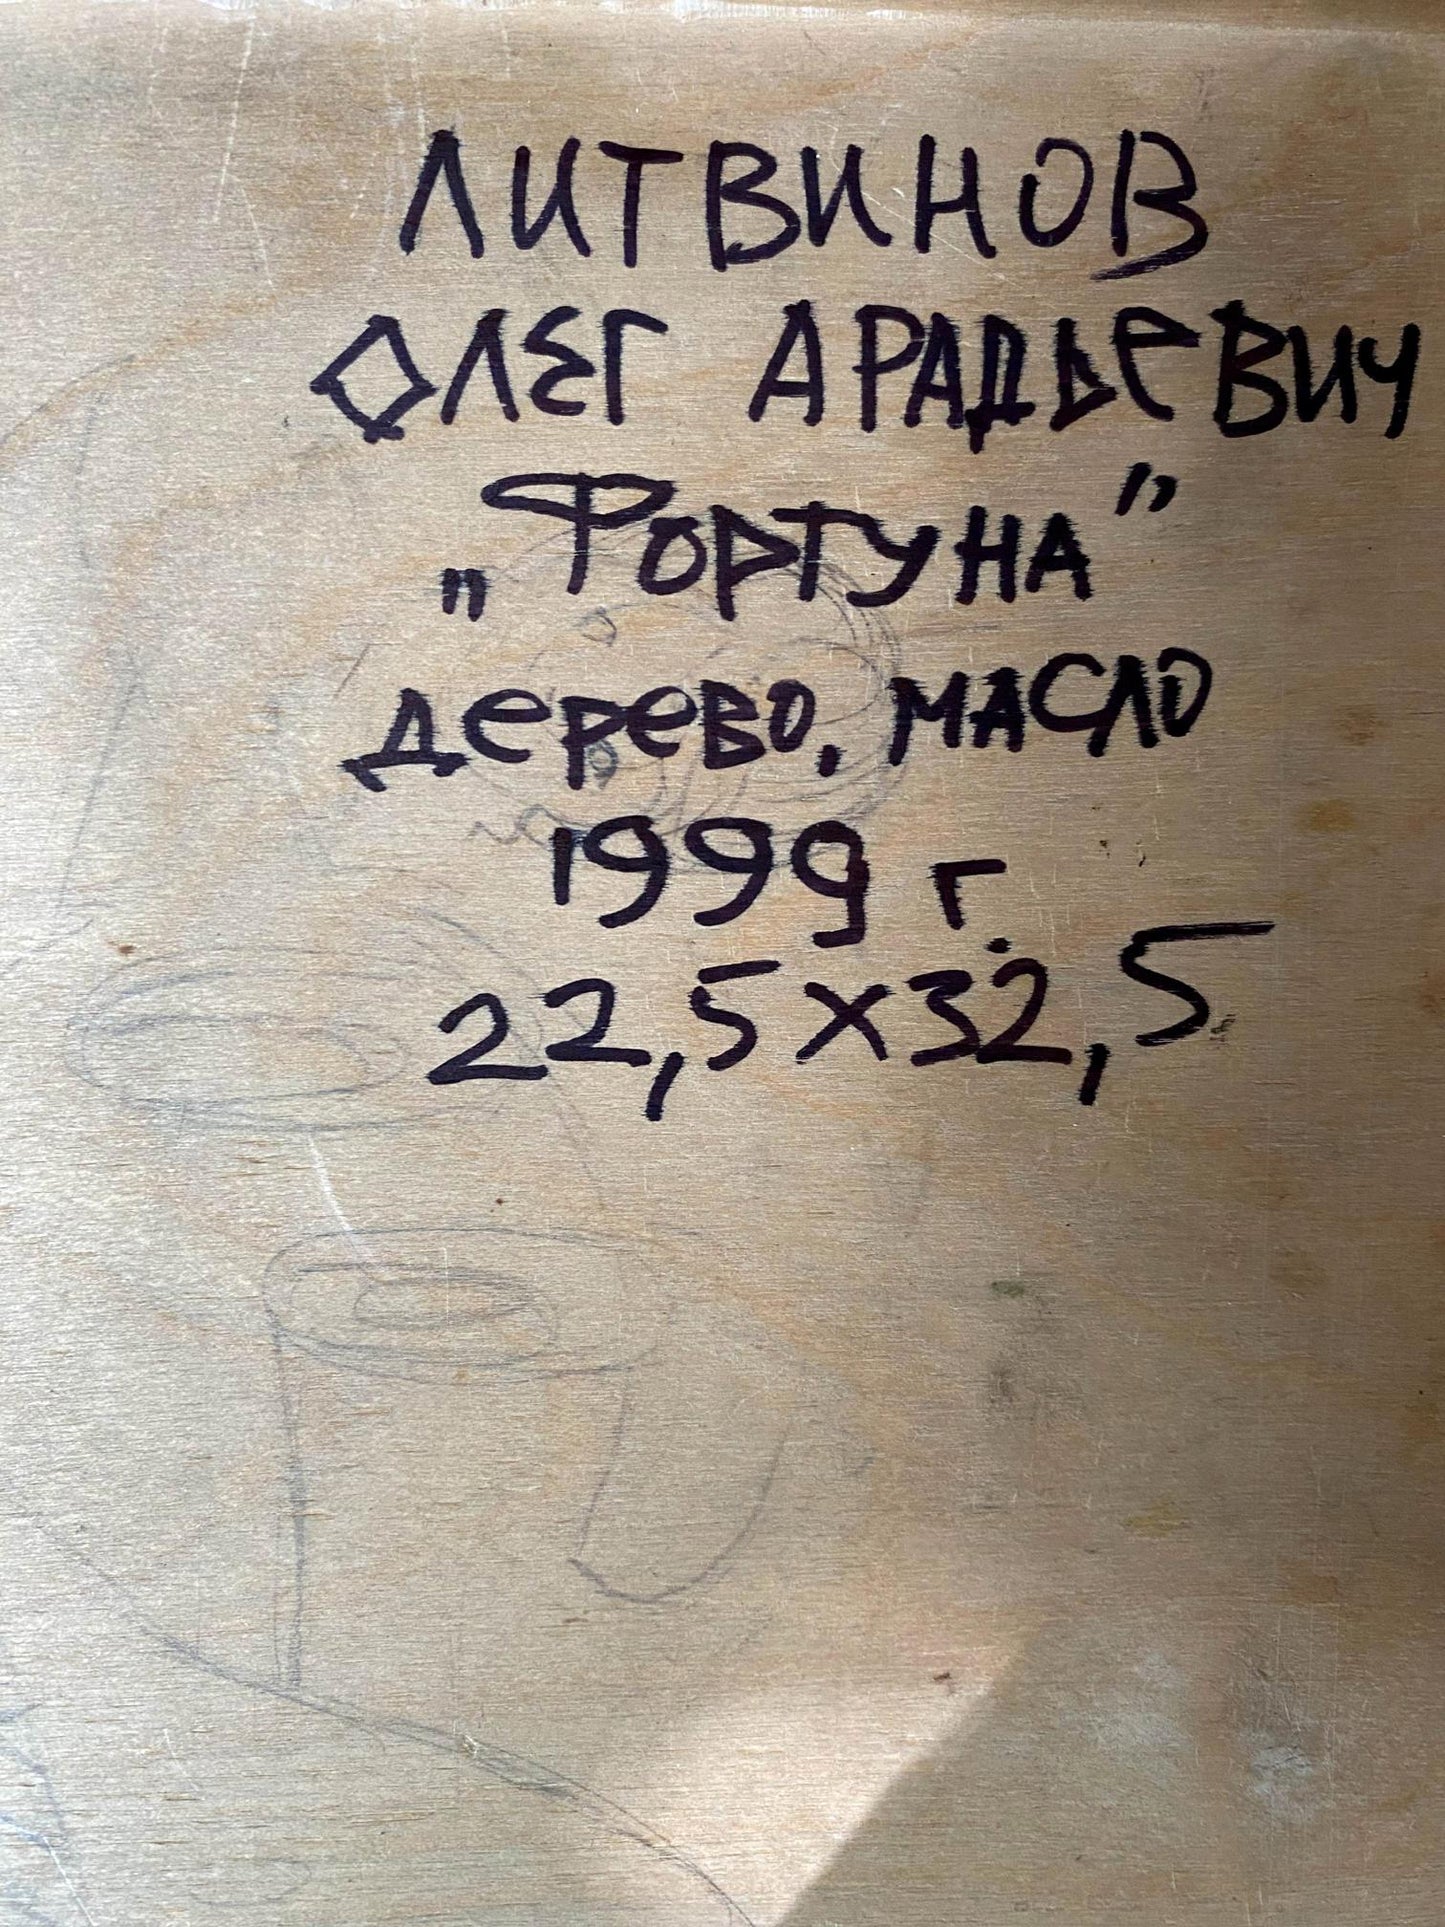 ЛИТВИНОВ
ОЛЕГ АРАДЬЕВИЧ
„ФОРТУНА”
ДЕРЕВО, МАСЛО
1999 г.
22,5х32,5